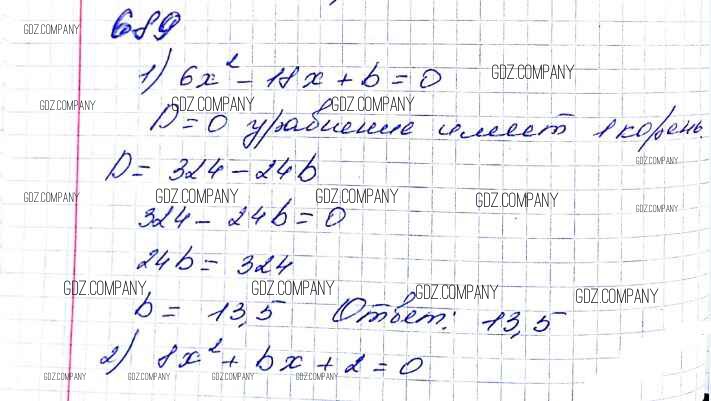 GDZ.COMPANY 689
1) 6x² - 18x + b = 0 GDZ.COMPANY
GDZ.COMPANY GDZ.COMPANY GDZ.COMPANY
D = 0 уравнение имеет 1 корень.
GDZ.COMPANY
D = 324 - 24b
GDZ.COMPANY GDZ.COMPANY GDZ.COMPANY GDZ.COMPANY GDZ.COMPANY
324 - 24b = 0
24b = 324
GDZ.COMPANY GDZ.COMPANY GDZ.COMPANY GDZ.COMPANY
b = 13,5 Ответ: 13,5
2) 8x² + bx + 2 = 0
GDZ.COMPANY GDZ.COMPANY GDZ.COMPANY GDZ.COMPANY